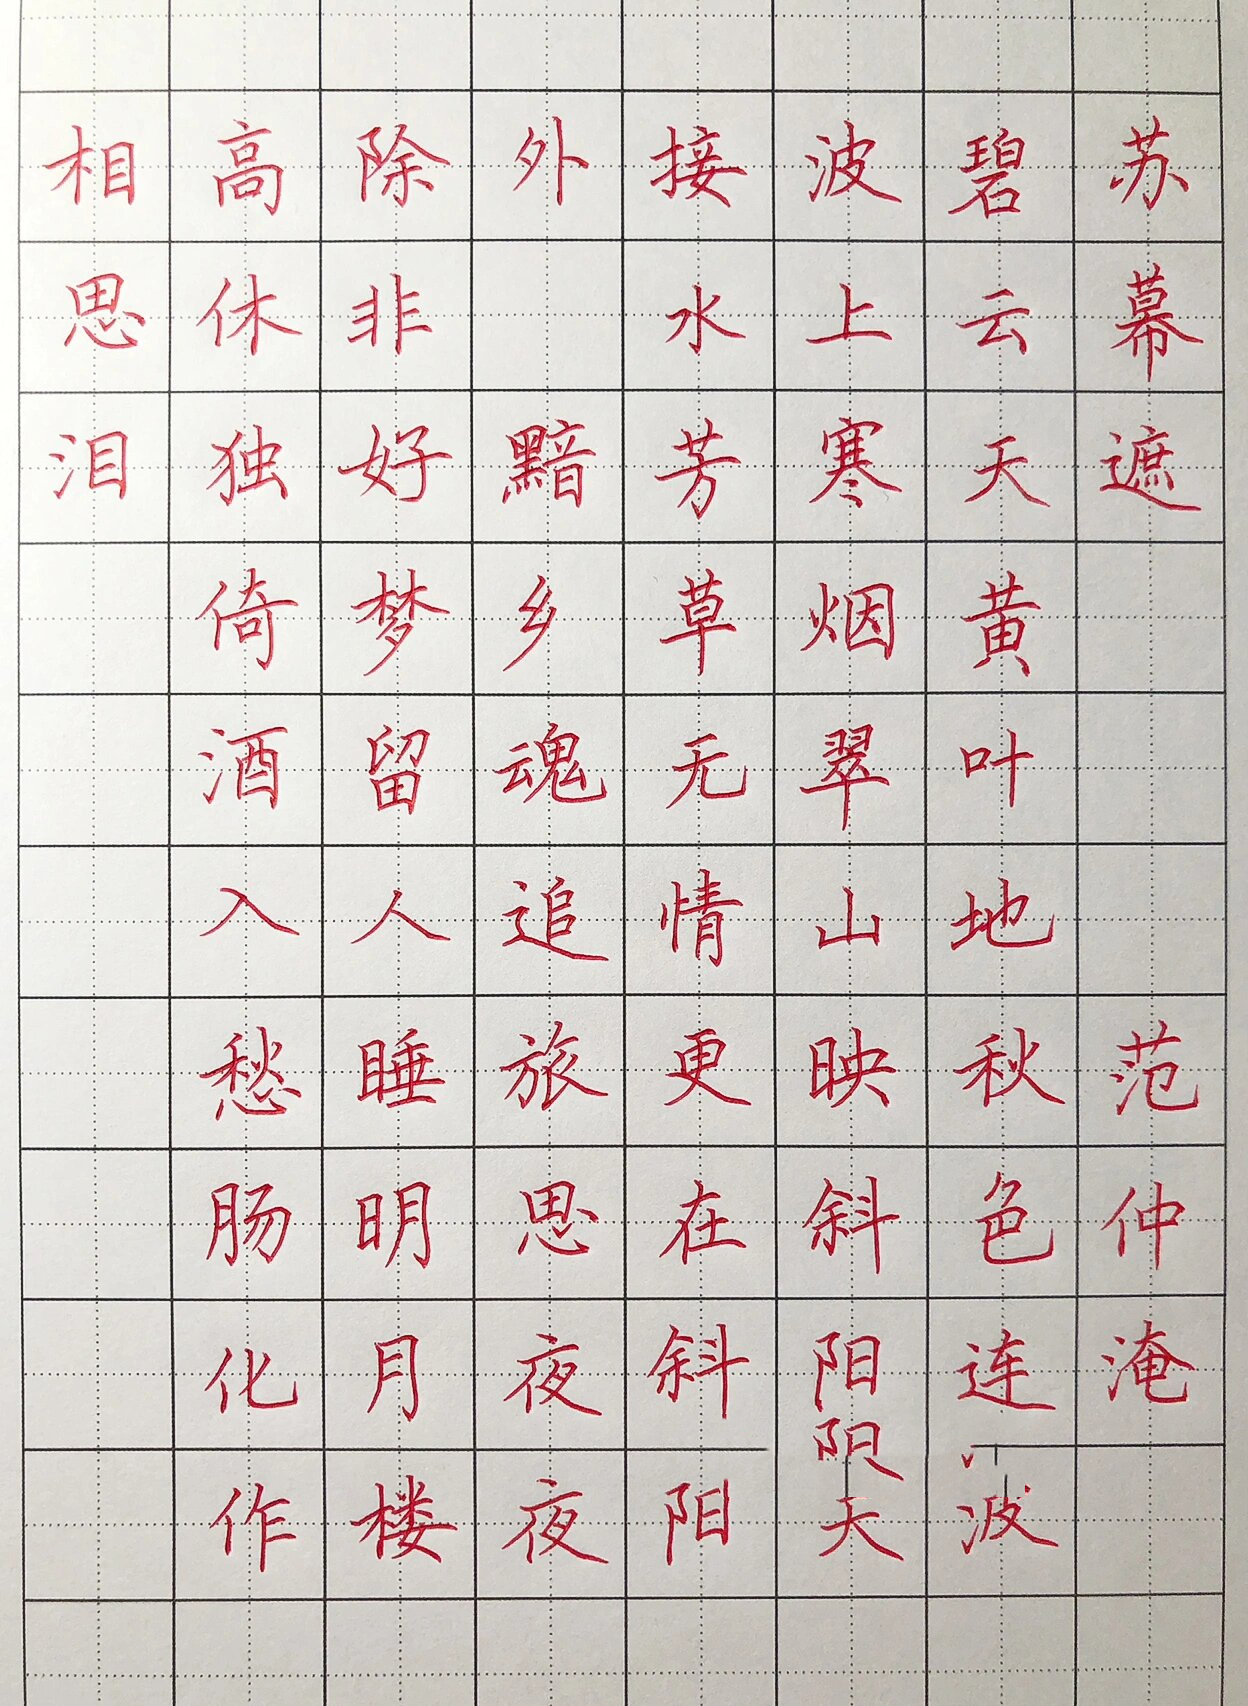 苏幕遮 范仲淹
碧云天黄叶地秋色连波
波上寒烟翠山映斜阳天
接水芳草无情更在斜阳
外 黯乡魂追旅思夜夜
除非好梦留人睡明月楼
高休独倚酒入愁肠化作
相思泪